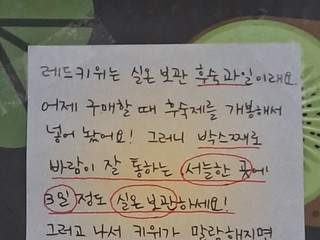 레드키위는 실온 보관 후숙과일이래요
어제 구매할 때 후숙제를 개봉해서
넣어 놨어요! 그러니 박스째로
바람이 잘 통하는 서늘한 곳에
3일 정도 실온보관하세요!
그러고 나서 키위가 말랑해지면